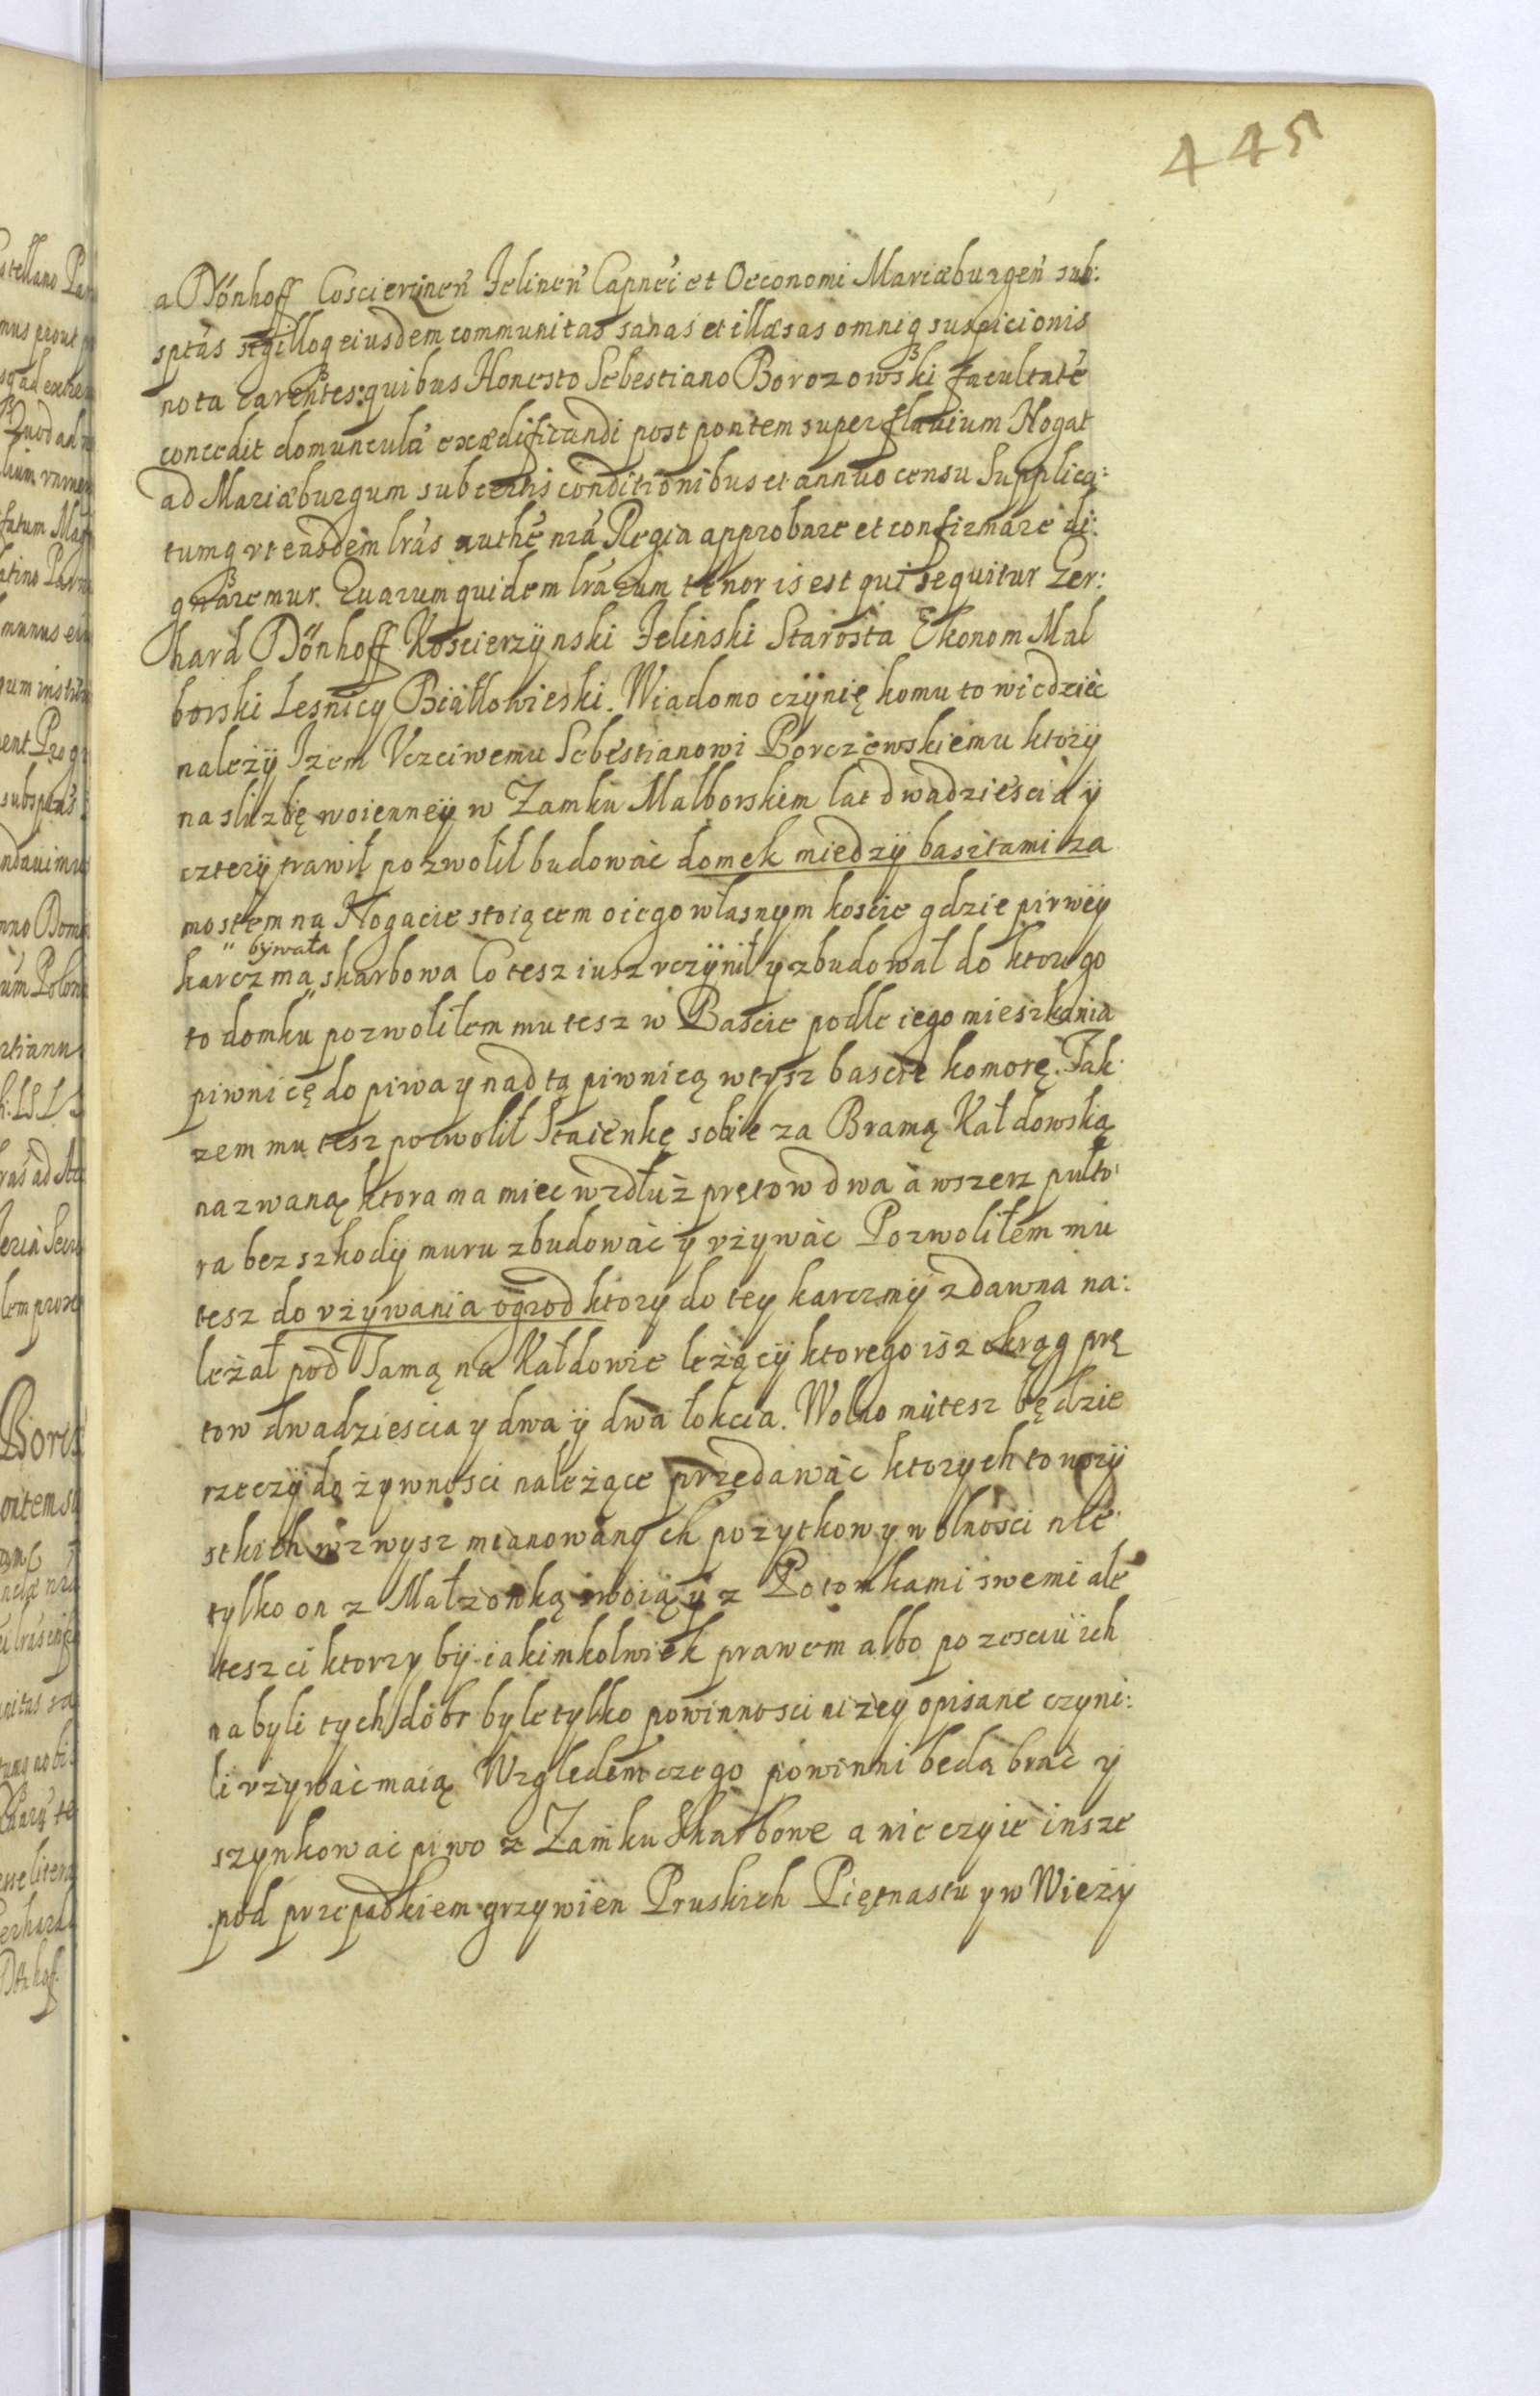 445
a Dőnhoff Coscierzinen̄ Jelinen̄ Capnēi et Oeconomi Mariæburgen̄ sub:
sptās sigilloq eiusdem communitas sanas et illæsas omniq suspicionis
nota carentes: quibus Honesto Sebestiano Borozowski facultatē
concedit domunculā exædificandi post pontem super fluuium Nogat
ad Mariæburgum sub certis conditionibus et annuo censu Supplica:
tumq vt easdem lrās authē nrā Regia approbare et confirmare di:
gnaremur. Quarum quidem lrārum tenor is est qui sequitur Ger:
hard Dőnhoff Koscierzÿnski Jelinski Starosta Ekonom Mal
borski Lesnicy Białłowieski. Wiadomo czÿnię komu to wiedzièc
należÿ Izem Vczciwemu Sebestianowi Borczewskiemu ktorÿ
na sluzbę woienneÿ w Zamku Malborskim lat dwadziescia ÿ
czterÿ trawił pozwolił budowàc domek miedzÿ basztami za
mostem na Nogacie stoiącem o iego własnym koscie gdzie pirwëy
karczma " bÿwała skarbowa Co tesz iusz vczÿnił y zbudował do ktorego
to domku pozwoliłem mu tesz w Bascie podle iego mieszkania
piwnicę do piwa y nad tą piwnicą w tysz bascie komorę. Tak
zem mu tesz pozwolił Staienkę sobie za Bramą Kałdowską
nazwaną ktora ma miec wzdłuż prętow dwa à wszerz pułto
ra bez szkodÿ muru zbudowàc ÿ vżywàc Pozwoliłem mu
tesz do vżywania ogrod ktory do tey karczmÿ zdawna na:
leżał pod Tamą na Kałdowie leżącÿ ktorego isz okrąg prę
tow dwadziescia y dwa ÿ dwa łokcia. Wolno mu tesz będzie
rzeczÿ do żywnosci należące przedawàc ktorych to wszÿ
stkich wzwysz mianowanych pozytkow y wolnosci nie
tylko on z Małzonką swoią y z Potomkami swemi ale
tesz ci ktorzy bÿ iakimkolwiek prawem albo po zesciu ich
nabyli tych dobr byle tylko powinnosci niżey opisane czyni:
li vzywàc maią Względem czego powinni beda bràc y
szynkowàc piwo z Zamku Skarbowe a nie czyie insze
pod przepadkiem grzywien Pruskich Piętnastu y w Wieży